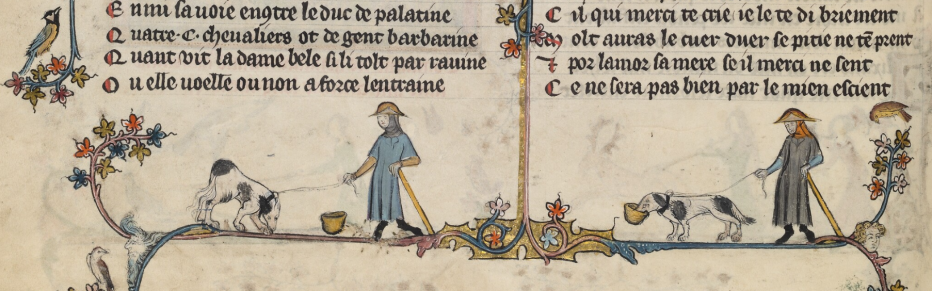 E nmi sa uoie encōtre le duc de palatine
Q uatre .C. cheualiers ot de gent barbarine
Q uant vit la dame bele si li tolt par rauine
O u elle uoelle ou non a force lentraine
C il qui merci te crie ie le te di briement
M olt auras le cuer dur se pitie ne tē prent
⁊ por lamor sa mere se il merci ne sent
C e ne sera pas bien par le mien escient